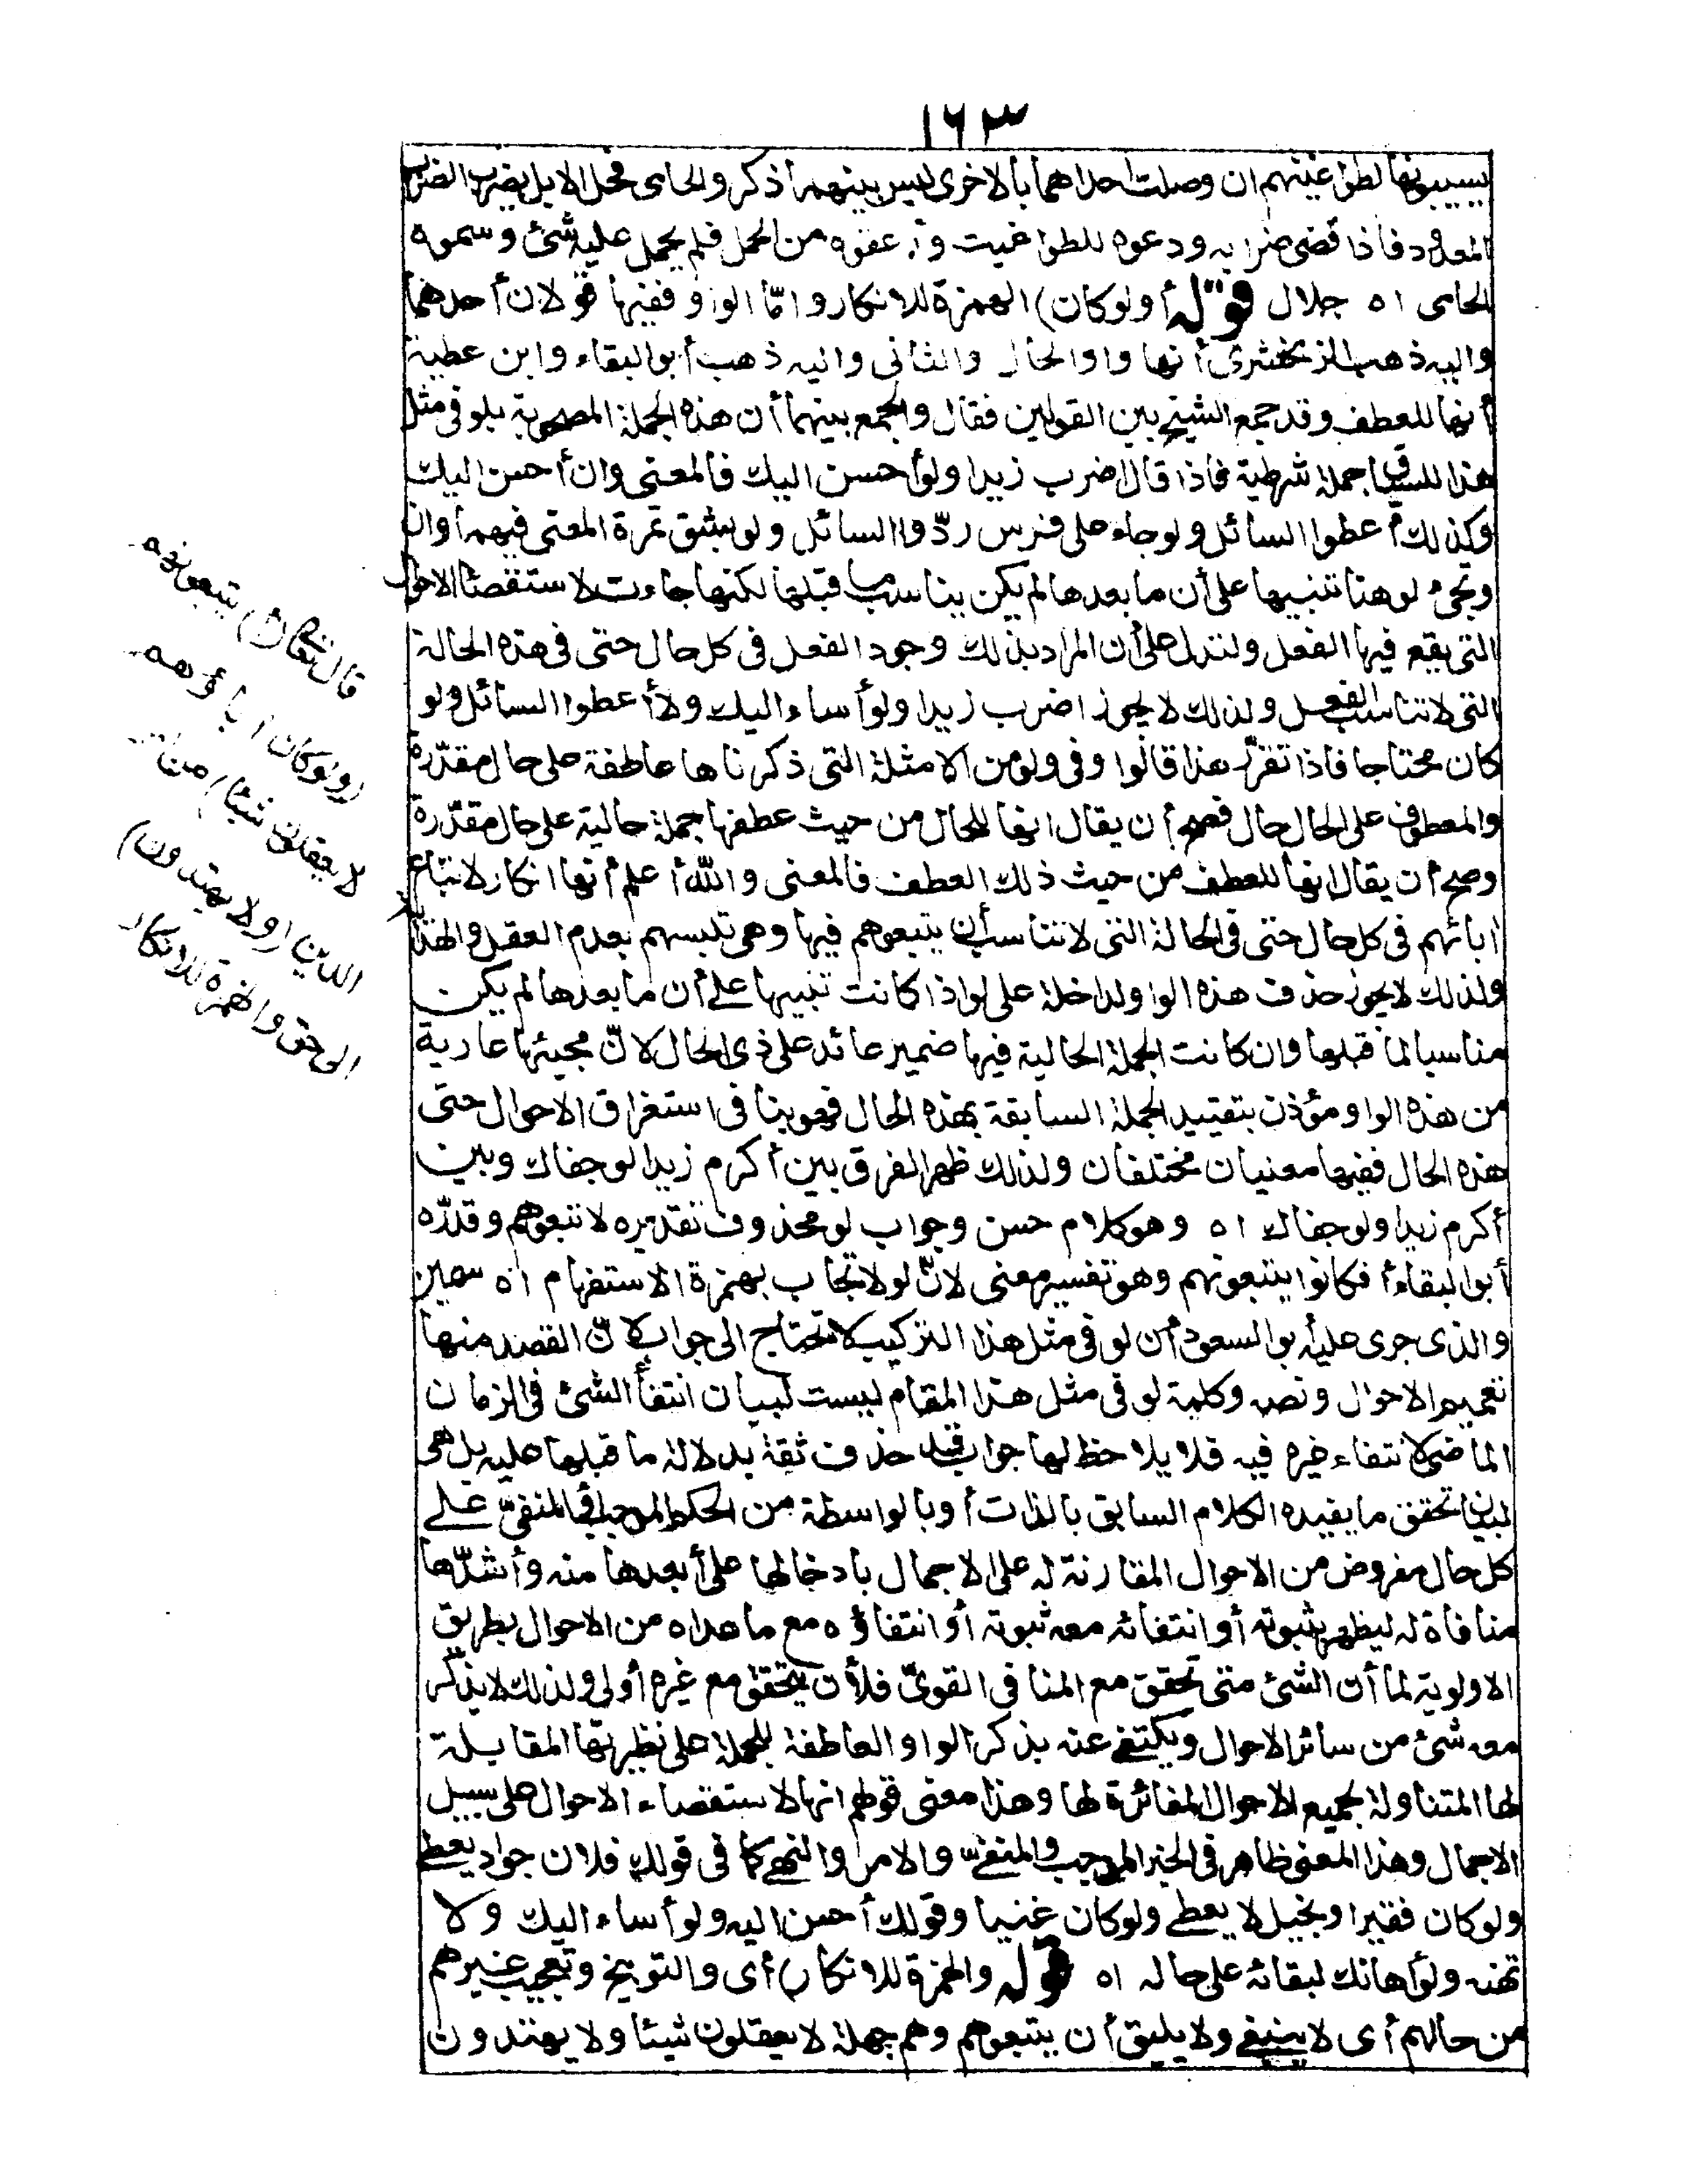 ١٦٣
يسيبونها لطواغيتهم ان وصلت احداهما بالاخرى ليس بينهما ذكر والحامى فحل الابل يضرب الضراب
المعدود فاذا قضى ضرابه ودعوه للطواغيت و عفوه من الحمل فلم يحمل عليه شئ وسموه
الحامى اه جلال قوله أولوكان) الهمزة للانكار وامّا الواو ففيها قولان أحدهما
واليه ذهب الزمخشرى أنها واوالحال والثانى واليه ذهب أبوالبقاء وابن عطية
أنها للعطف وقد جمع الشيخ بين القولين فقال والجمع بينهما أن هذه الجملة المصحوبة بلو فى مثل
هذا السياق جملة شرطية فاذا قال اضرب زيدا ولو أحسن اليك فالمعنى وان أحسن اليك
وكذلك أعطوا السائل ولو جاء على فرس ردّوا السائل ولو بشق تمرة المعنى فيهما وان
وتجئ لو هنا تنبيها على أن ما بعدها لم يكن يناسب ما قبلها لكنها جاءت لاستقصاء الاحوال
التى يقع فيها الفعل ولتدل على أن المراد بذلك وجود الفعل فى كل حال حتى فى هذه الحالة
التى لا تناسب الفعل ولذلك لا يجوز اضرب زيدا ولو أساء اليك ولا أعطوا السائل ولو
كان محتاجا فاذا تقرّر هذا قالوا وفى ولو من الامثلة التى ذكرناها عاطفة على حال مقدّرة
والمعطوف على الحال حال فصح أن يقال انها للحال من حيث عطفها جملة حالية على حال مقدّرة
وصح أن يقال انها للعطف من حيث ذلك العطف فالمعنى والله أعلم أنها انكار لاتباع
اٰبائهم فى كل حال حتى فى الحالة التى لا تناسب أن يتبعوهم فيها وهى تلبسهم بعدم العقل والهداية
ولذلك لا يجوز حذف هذه الواو الداخلة على لو اذا كانت تنبيها على أن ما بعدها لم يكن
مناسبا لما قبلها وان كانت الجملة الحالية فيها ضمير عائد على ذى الحال لانّ مجيئها عارية
من هذه الواو مؤذن بتقييد الجملة السابقة بهذه الحال فهو ينافى استغراق الاحوال حتى
هذه الحال ففيها معنيان مختلفان ولذلك ظهر الفرق بين أكرم زيدا لو جفاك وبين
أكرم زيدا ولو جفاك اه وهو كلام حسن وجواب لو محذوف تقديره لاتبعوهم وقدّره
أبوالبقاء أفكانوا يتبعونهم وهو تفسير معنى لانّ لو لا تجاب بهمزة الاستفهام اه سمين
والذى جرى عليه أبوالسعود أن لو فى مثل هذا التركيب لا تحتاج الى جواب لانّ القصد منها
تعميم الاحوال ونصه وكلمة لو فى مثل هذا المقام ليست لبيان انتفاء الشئ فى الزمان
الماضى لانتفاء غيره فيه فلا يلاحظ لها جواب قد حذف ثقة بدلالة ما قبلها عليه بل هى
لبيان تحقق ما يفيده الكلام السابق بالذات أو بالواسطة من الحكم الموجب أو المنفىّ على
كل حال مفروض من الاحوال المقارنة له على الاجمال بادخالها على أبعدها منه وأشدّها
منافاة له ليظهر بثبوته أو انتفائه معه ثبوته أو انتفاؤه مع ما عداه من الاحوال بطريق
الاولوية لما أن الشئ متى تحقق مع المنافى القوىّ فلأن يتحقق مع غيره أولى ولذلك لا يذكر
معه شئ من سائر الاحوال ويكتفى عنه بذكر الواو العاطفة للجملة على نظيرتها المقابلة
لها المتناولة لجميع الاحوال المغائرة لها وهذا معنى قولهم انها لاستقصاء الاحوال على سبيل
الاجمال وهذا المعنى ظاهر فى الخبر الموجب والمنفىّ والامر والنهى كما فى قولك فلان جواد يعطى
ولو كان فقيرا وبخيل لا يعطى ولو كان غنيا وقولك أحسن اليه ولو أساء اليك ولا
تهنه ولو أهانك لبقائه على حاله اه قوله والهمزة للانكار) أى والتوبيخ وتعجيب غيرهم
من حالهم أى لا ينبغى ولا يليق أن يتبعوهم وهم جهلة لا يعقلون شيئا ولا يهتدون
قال تعالى يتبعونهم
(ولوكان اٰباؤهم
لا يعقلون شيئا) من أمر
الدين (ولا يهتدون)
الى حق والهمزة للانكار